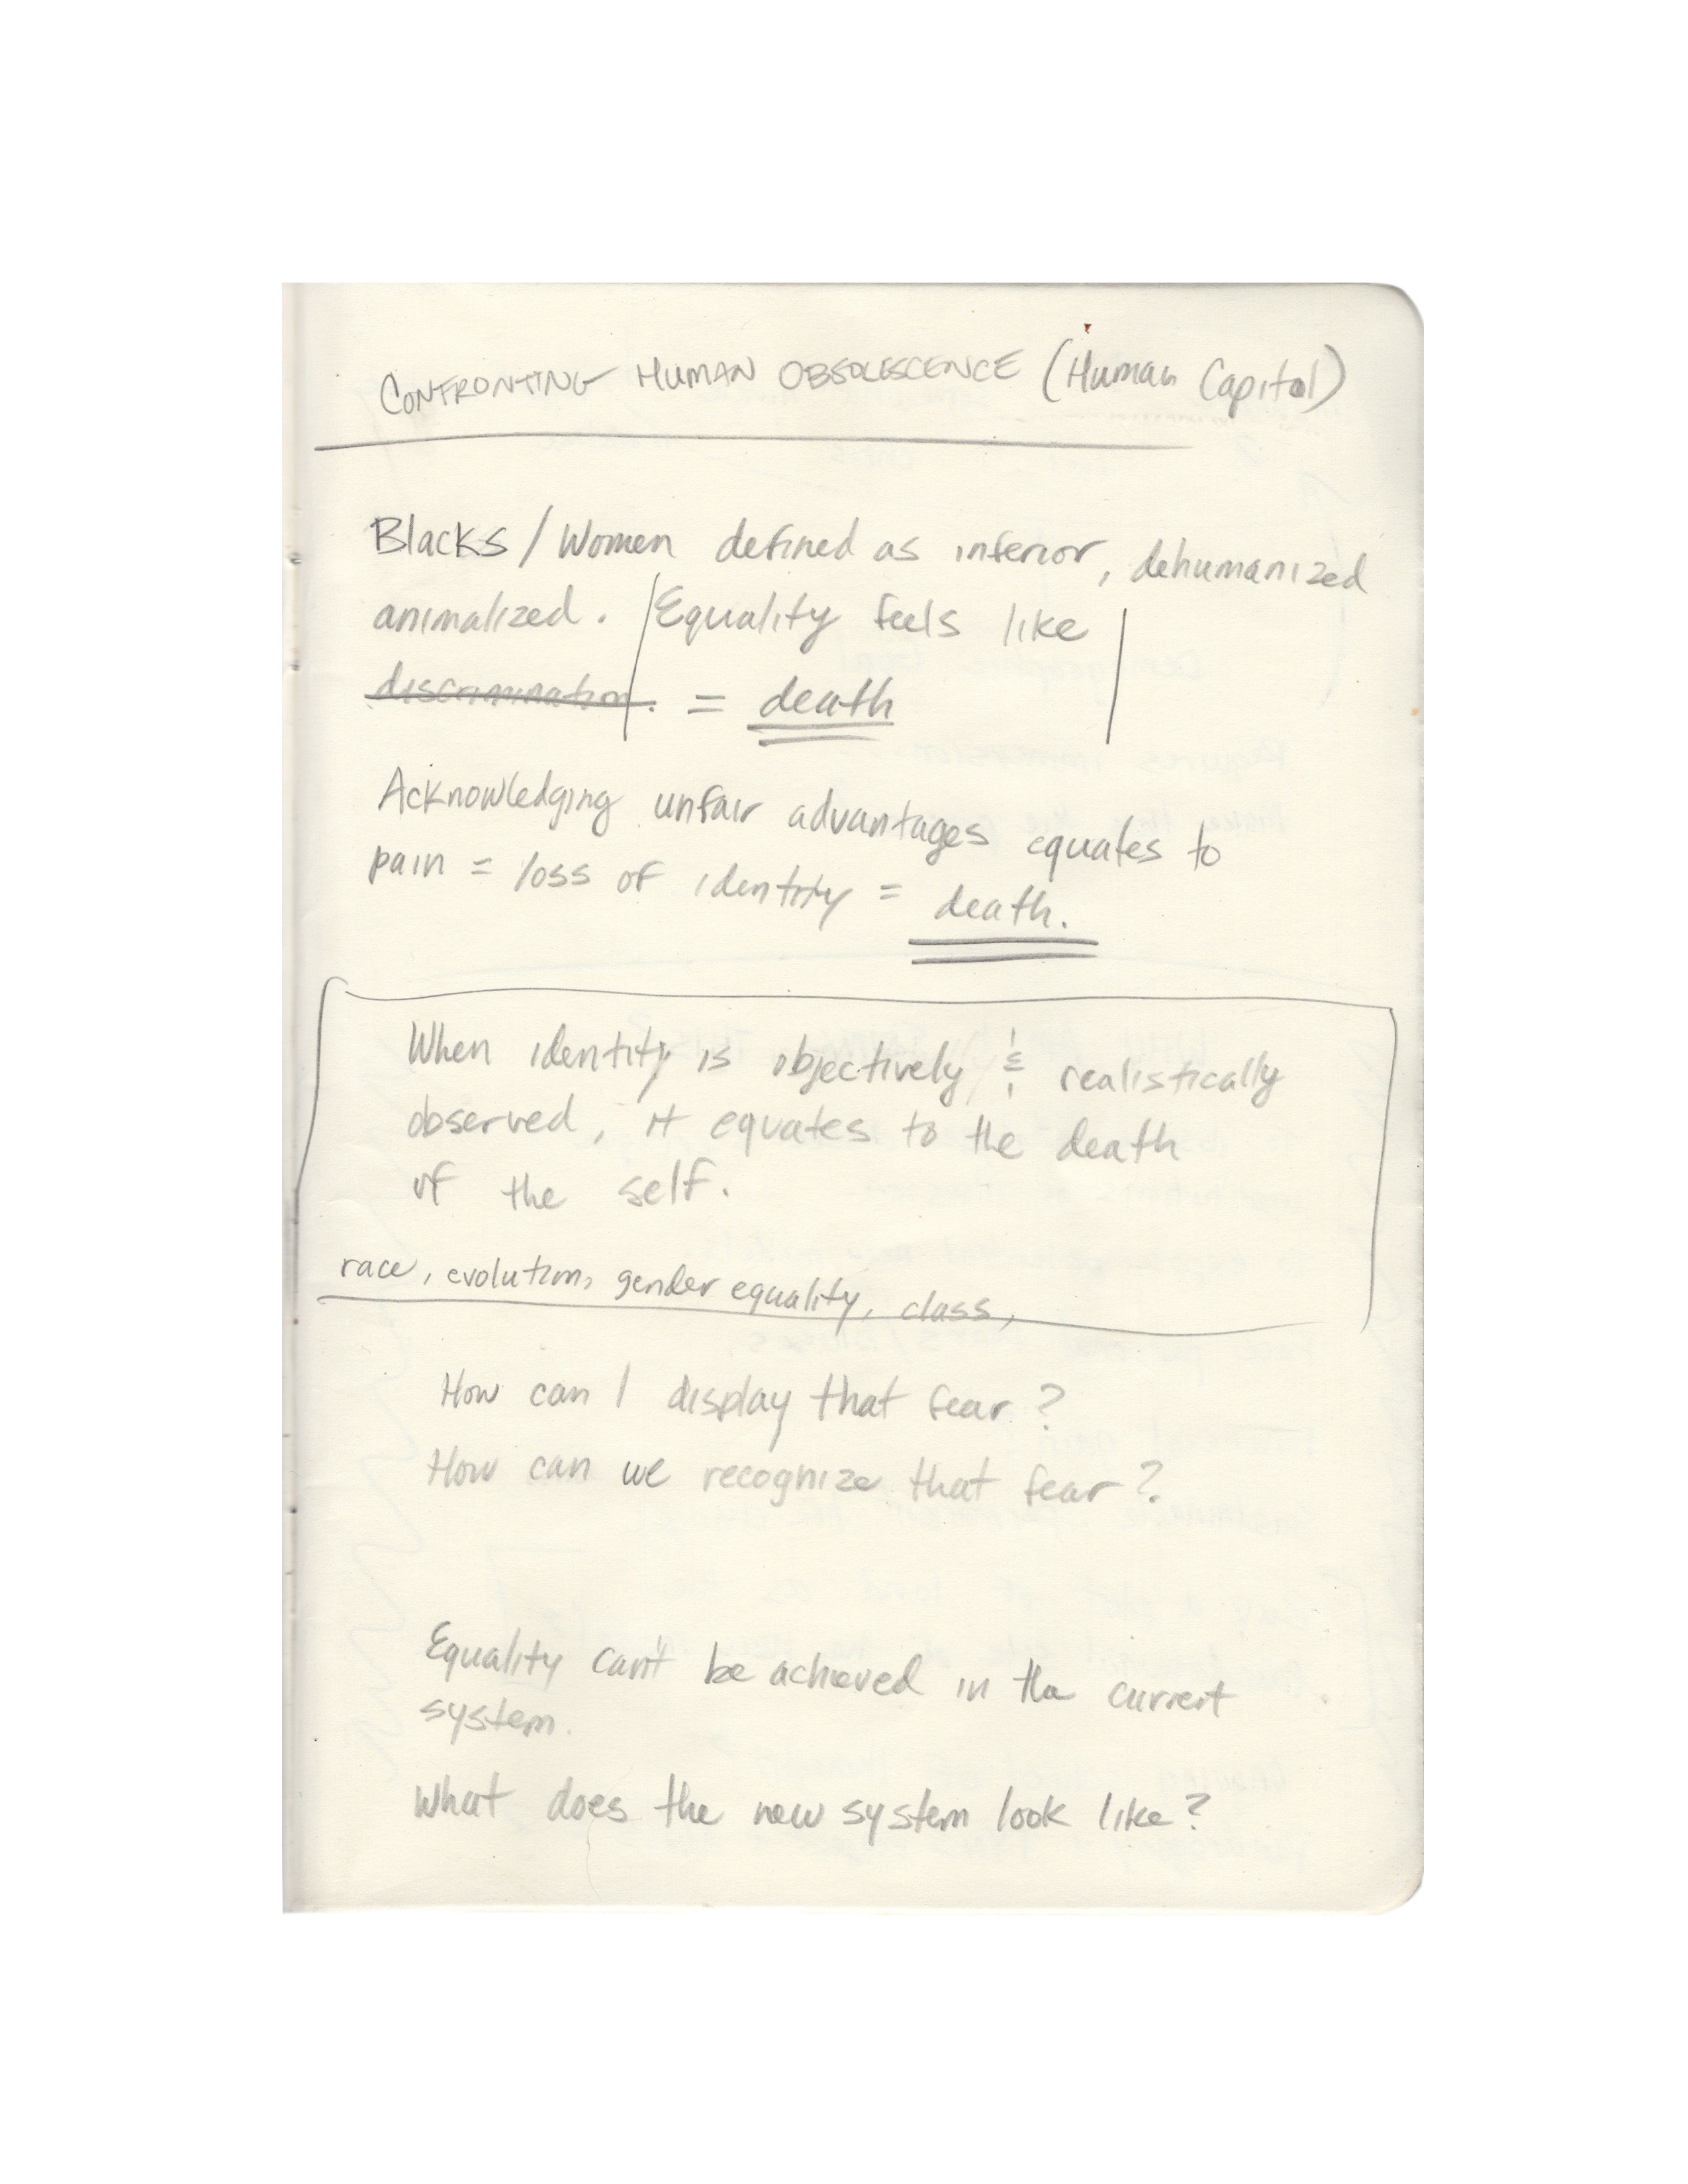 CONFRONTING HUMAN OBSOLESCENCE (Human Capital)
Blacks / Women defined as inferior, dehumanized
animalized. Equality feels like
discrimination. = death
Acknowledging unfair advantages equates to
pain = loss of identity = death.
When identity is objectively & realistically
observed, it equates to the death
of the self.
race, evolution, gender equality, class,
How can I display that fear?
How can we recognize that fear?
Equality can't be achieved in the current
system.
What does the new system look like?